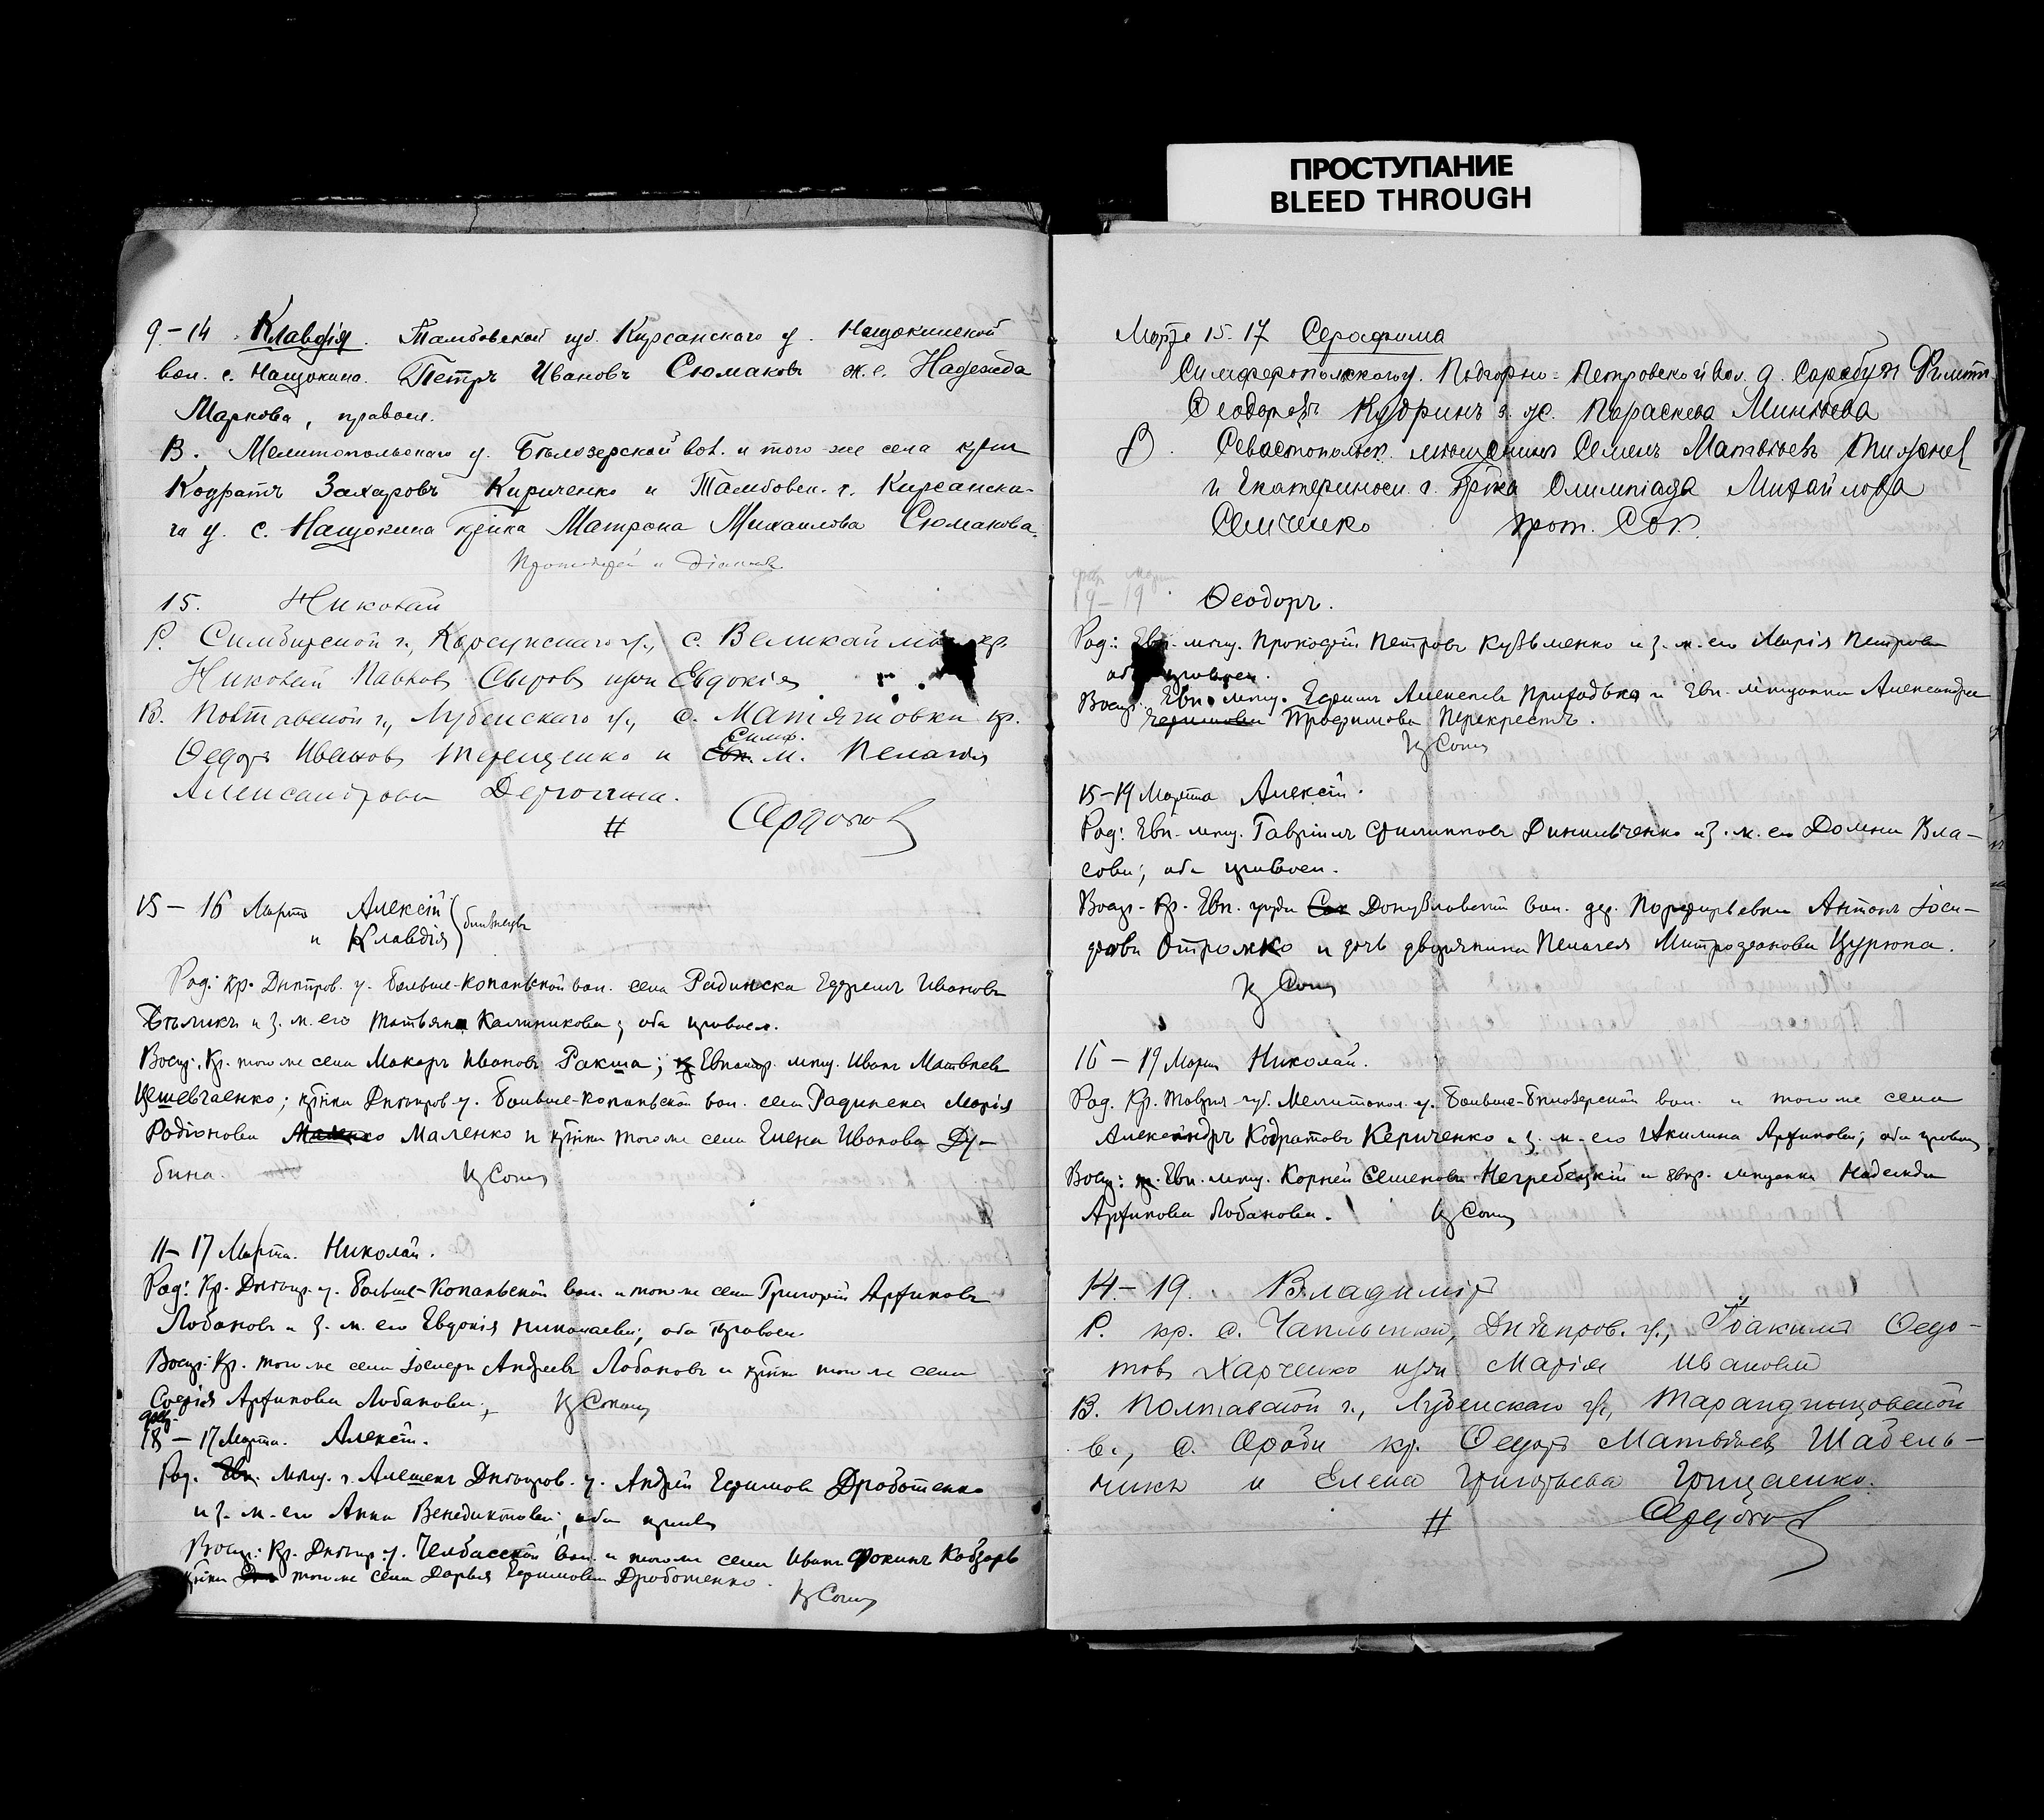 ПРОСТУПАНИЕ
BLEED THROUGH
9–14 Клавдія. Тамбовской губ. Кирсанскаго у. Нащокинской
вол. с. Нащокина. Петръ Ивановъ Сюмаковъ ж. е. Надежда
Маркова, правосл.
В. Мелитопольскаго у. Бѣлозерской вол. и того же села кр-нъ
Кодратъ Захаровъ Кириченко и Тамбовск. г. Кирсанска-
го у. с. Нащокина кр-нка Матрона Михаилова Сюмакова.
Протоіерей и Діаконъ
15. Николай
Р. Симбирской г., Карсунскаго у., с. Великай кр.
Николай Павловъ Сыровъ Евдокія
В. Полтавской г., Лубенскаго у., с. Матяшовки кр.
Симф.
Ѳедоръ Ивановъ Терещенко и м. Пелагія
Александрова
#
15–16 Марта Алексій
и Клавдія близнецы
Род: Кр. Днѣпров. у. Больше-Копаньской вол. села Радинска Ефремъ Ивановъ
Бѣликъ и з. ж. его Татьяна Калиникова; оба правосл.
Воспр: Кр. того же села Макаръ Ивановъ Ракша; Евпатор. мѣщ. Иванъ Матвѣевъ
; кр-нка Днѣпров. у. Больше-Копаньской вол. села Радинска Марія
Родіонова Маленко и кр-нка того же села Елена Иванова Ду-
бина.
11–17 Марта. Николай.
Род: Кр. Днѣпр. у. Больше-Копаньской вол. и того же села Григорій Архиповъ
Лобановъ и з. ж. его Евдокія Николаева; оба правосл.
Воспр: Кр. того же села Іосифъ Андреевъ Лобановъ и кр-нка того же села
Софія Архипова Лобанова;
18–17 Марта. Алексій.
Род. мѣщ. г. Алешекъ Днѣпров. у. Андрей Ефимовъ Дроботенко
и з. ж. его Анна Венедиктова; оба
Воспр: Кр. Днѣпр. у. Челбасской вол. и того же села Иванъ Фокинъ Кобзарь
кр-нка того же села Дарья Ефимова Дроботенко.
Марта 15. 17 Серафима
Симферопольскаго у. Подгорно-Петровской вол. д. Сарабузъ
Ѳеодоровъ Кудринъ з. ж. Параскева Минаева
Севастопольск. мѣщанинъ Семенъ Матвѣевъ
и Екатеринос. г. Олимпіада Михайлова
Семченко прот.
19–19 Ѳеодоръ.
Род: Евп. мѣщ. Прокофій Петровъ Кузьменко и з. ж. его Марія Петрова
оба правосл.
Воспр. Евп. мѣщ. Ефимъ Алексѣевъ Приходько и Евп. мѣщанка Александра
Трофимова Перекрестъ.
15–19 Марта Алексій.
Род: Евп. мѣщ. Гавріилъ Филипповъ Данильченко и з. ж. его Домна Вла-
сова; оба правосл.
Воспр. Кр. Евп. уѣзда Донузлавской вол. дер. Порфирьевки Антонъ Іоси-
фовъ и дочь дворянина Пелагея Митрофанова Цурюпа.
16–19 Марта Николай.
Род. Кр. Таврич. губ. Мелитопол. у. Больше-Бѣлозерской вол. и того же села
Александръ Кодратовъ Кериченко и з. ж. его Акилина Архипова; оба правосл
Воспр: Евп. мѣщ. Корней Семеновъ Негребецкій и Евпр. мѣщанка Надежда
Архипова Лобанова.
14–19. Владиміръ
Р. кр. с. Чаплынки, Днѣпров. у., Іоакимъ Ѳедо-
товъ Харченко Марія Иванова
В. Полтавской г., Лубенскаго у.,
в., с. кр. Ѳедоръ Матвѣевъ Шабель-
никъ и Елена Григорьева Грицаенко.
#